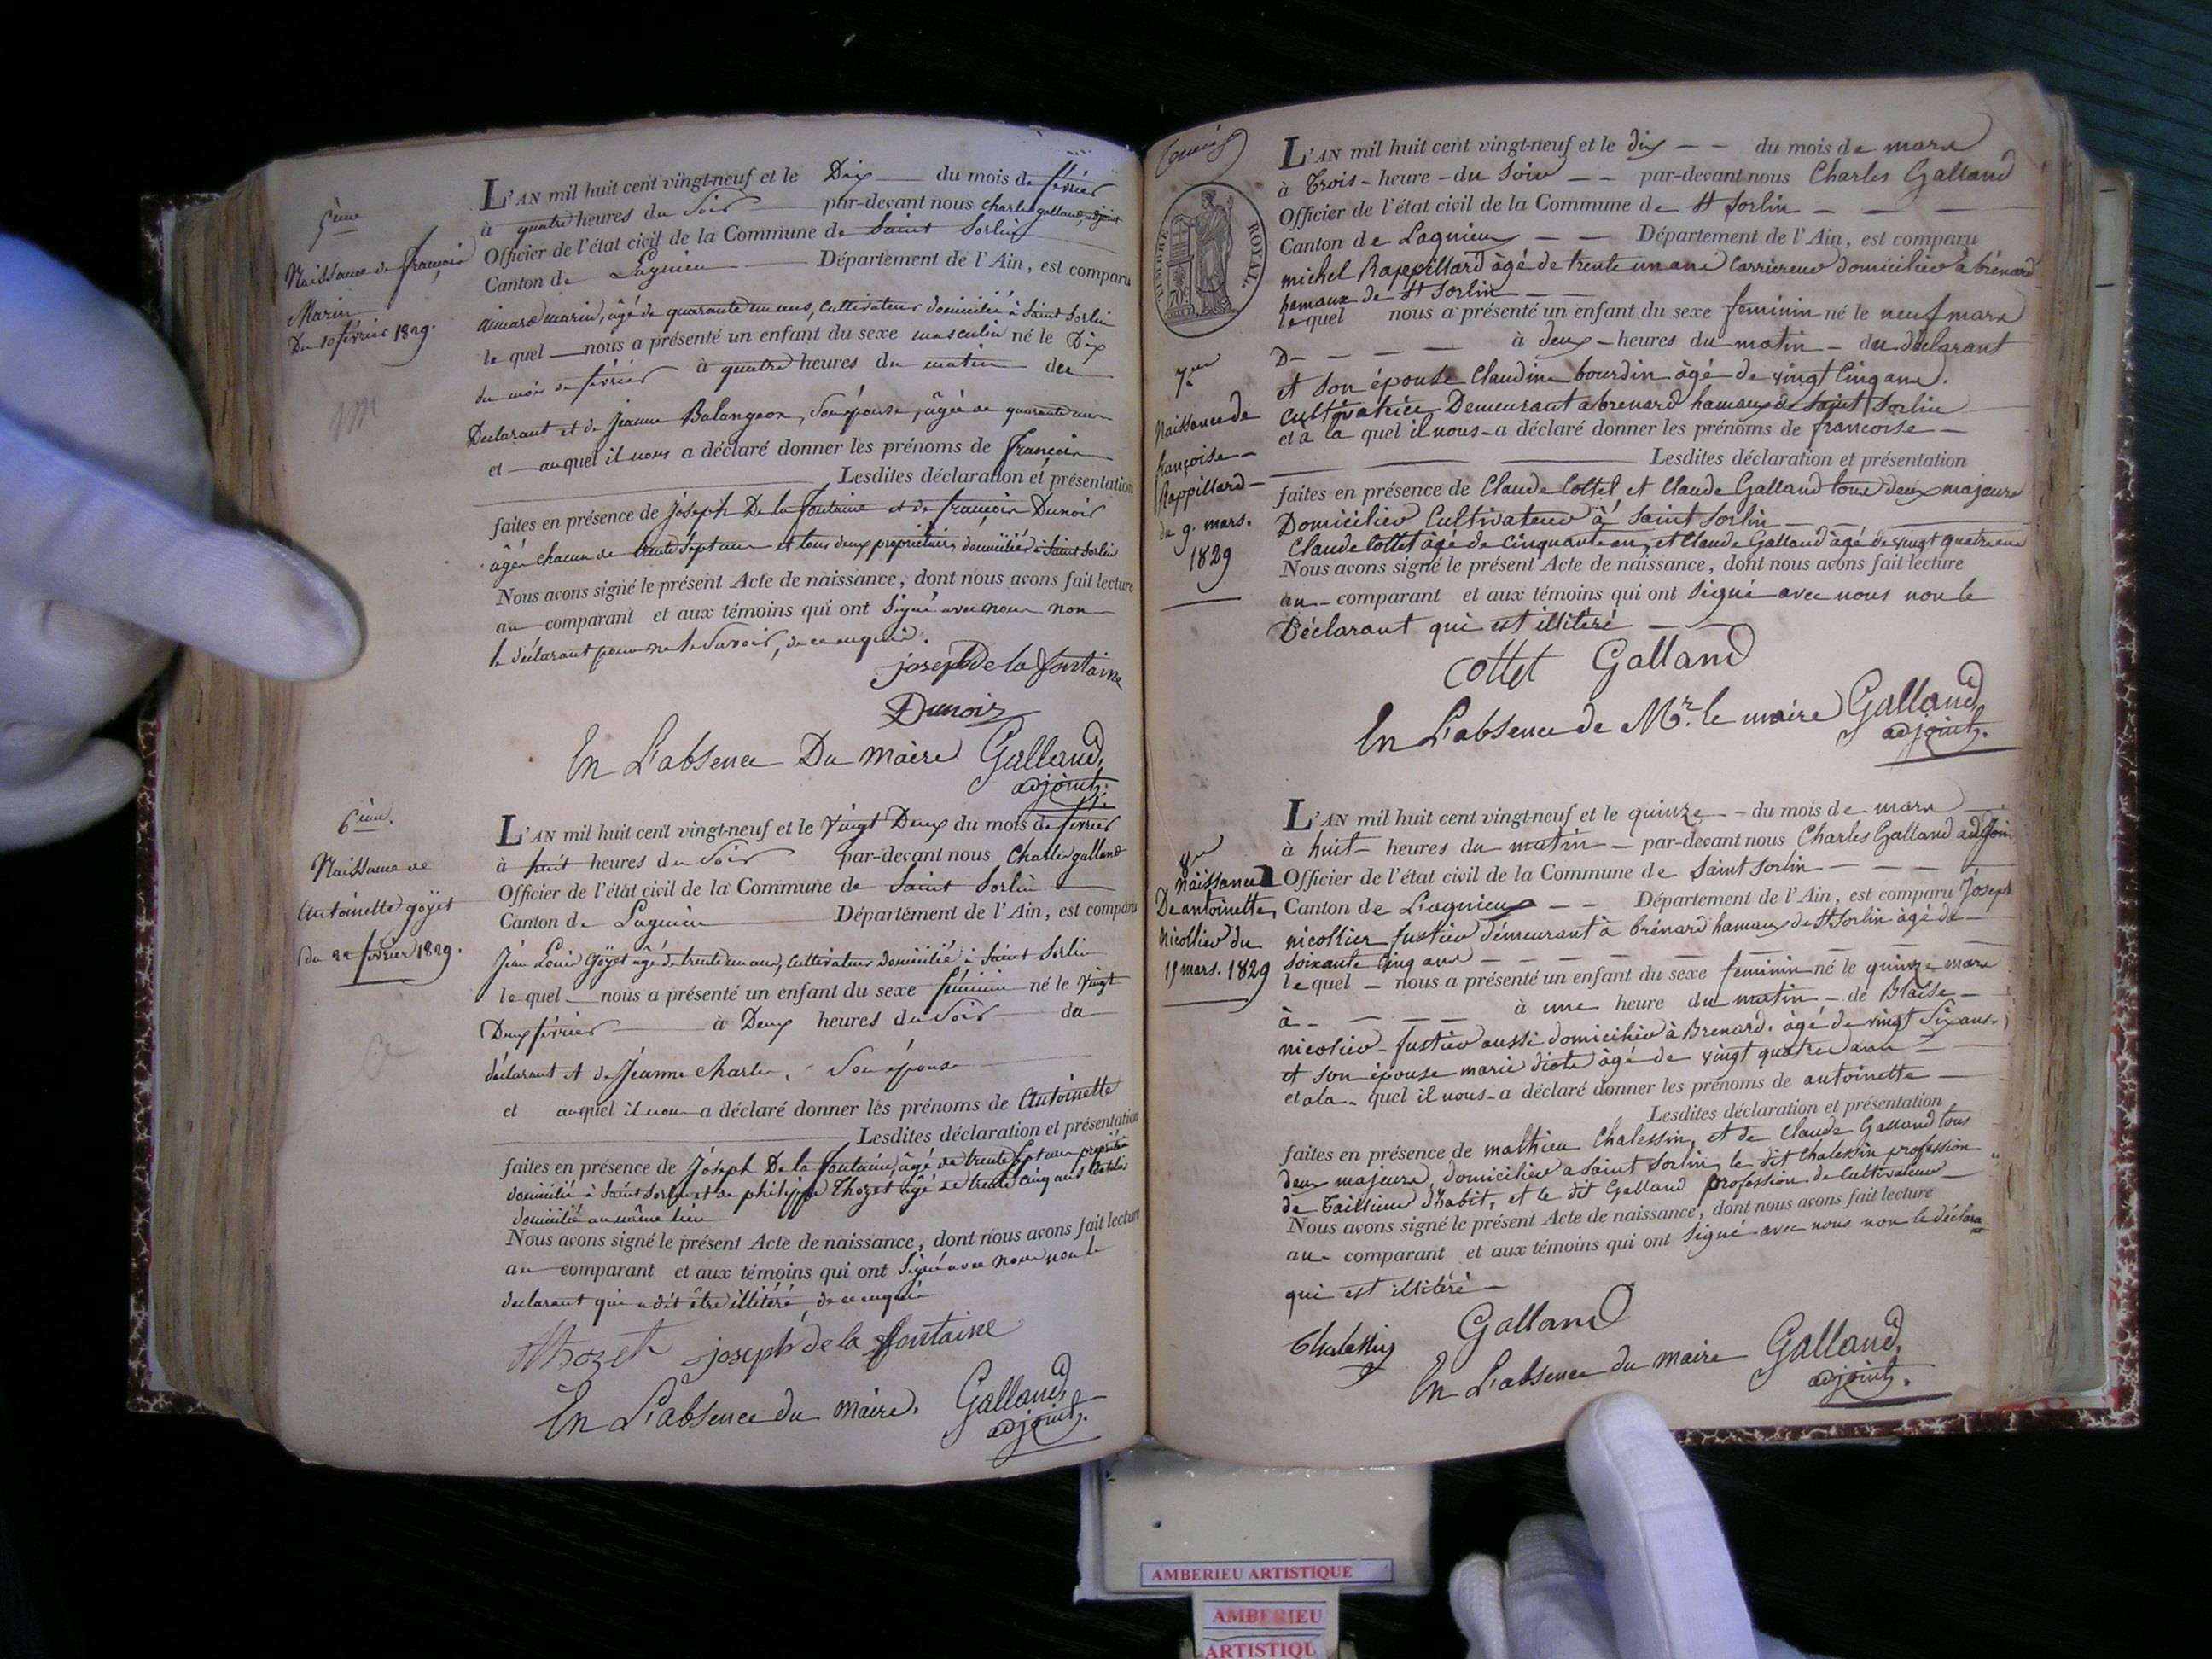 5ème
Naissance de françois
Marin
Du 10 février 1829.
L'AN mil huit cent vingt-neuf et le Dix du mois de février
à quatre heures du Soir par-devant nous charles galland, adjoint
Officier de l'état civil de la Commune de Saint Sorlin
Canton de Lagnieu Département de l'Ain, est comparu
aimard marin, âgé de quarante un ans, cultivateur domicilié à Saint Sorlin
le quel nous a présenté un enfant du sexe masculin né le Dix
du mois de février à quatre heures du matin du
Déclarant et de Jeanne Balangeon, Son épouse, âgée de quarante un
et auquel il nous a déclaré donner les prénoms de françois
Lesdites déclaration et présentation
faites en présence de Joseph De la fontaine et de françois Dunoir
âgés chacun de trente Sept ans et tous deux propriétaires, domiciliés à Saint Sorlin
Nous avons signé le présent Acte de naissance, dont nous avons fait lecture
au comparant et aux témoins qui ont Signé avec nous non
le déclarant pour ne le Savoir, de ce enquis.
joseph de la fontaine
Dunoir
En L'absence Du maire Galland,
adjoint.
6ème.
Naissance de
Antoinette goyet
du 22 février 1829.
L'AN mil huit cent vingt-neuf et le Vingt Deux du mois de février
à huit heures du Soir par-devant nous Charles galland
Officier de l'état civil de la Commune de Saint Sorlin
Canton de Lagnieu Département de l'Ain, est comparu
Jean Louis Goyet âgé de trente un ans, Cultivateur domicilié à Saint Sorlin
le quel nous a présenté un enfant du sexe féminin né le Vingt
Deux février à Deux heures du Soir du
déclarant et de Jeanne charles, Son épouse
et auquel il nous a déclaré donner les prénoms de Antoinette
Lesdites déclaration et présentation
faites en présence de Joseph De la fontaine, âgé de trente Sept ans propriétaire
domicilié à Saint Sorlin et de philippe Thozet âgé de trente cinq ans
domicilié au même lieu
Nous avons signé le présent Acte de naissance, dont nous avons fait lecture
au comparant et aux témoins qui ont Signé avec nous non le
déclarant qui a dit être illitéré, de ce enquis
Thozet joseph de la fontaine
En L'absence du maire. Galland,
adjoint.
TIMBRE ROYAL.
70c
7me
Naissance de
françoise
Rappillard
du 9. mars.
1829
L'AN mil huit cent vingt-neuf et le dix du mois de mars
à Trois heure du Soir par-devant nous Charles Galland
Officier de l'état civil de la Commune de St Sorlin
Canton de Lagnieux Département de l'Ain, est comparu
michel Rappillard âgé de trente un ans Carriereur domicilier à brénard
hamaux de St Sorlin
le quel nous a présenté un enfant du sexe feminin né le neuf mars
D à deux heures du matin du déclarant
et son épouse Claudine bourdin âgé de vingt Cinq ans.
Cultivatrice, Demeurant a brenard hamaux de Saint Sorlin
et à la quel il nous a déclaré donner les prénoms de francoise
Lesdites déclaration et présentation
faites en présence de Claude Cottet et Claude Galland tous deux majeurs
Domicilier Cultivateur à Saint Sorlin
Claude Cottet âgé de Cinquante ans, et Claude Galland âgé de vingt quatre ans
Nous avons signé le présent Acte de naissance, dont nous avons fait lecture
au comparant et aux témoins qui ont Signé avec nous non le
Déclarant qui est illitéré
Cottet Galland
En L'absence de Mr. le maire Galland,
adjoint.
8me
Naissance
De antoinette
Nicollier du
15 mars. 1829
L'AN mil huit cent vingt-neuf et le quinze du mois de mars
à huit heures du matin par-devant nous Charles Galland adjoin
Officier de l'état civil de la Commune de Saint Sorlin
Canton de Lagnieux Département de l'Ain, est comparu Joseph
nicollier fustier démeurant à brénard hamaux de St Sorlin âgé de
Soixante Cinq ans
le quel nous a présenté un enfant du sexe feminin né le quinze mars
à à une heure du matin de Blaise
nicolier fustier aussi domicilier à Brenard. âgé de vingt Six ans.
et son épouse marie diote âgé de vingt quatre ans
et a la quel il nous a déclaré donner les prénoms de antoinette
Lesdites déclaration et présentation
faites en présence de mathieu Chalessin, et de Claude Galland tous
deux majeurs, domicilier a Saint Sorlin, le dit Chalessin profession
de Tailleur d'habit, et le dit Galland profession de Cultivateur
Nous avons signé le présent Acte de naissance, dont nous avons fait lecture
au comparant et aux témoins qui ont Signé avec nous non le déclarant
qui est illitéré
Chalessin Galland
En L'absence du maire Galland,
adjoint.
AMBERIEU ARTISTIQUE
AMBERIEU
ARTISTIQU